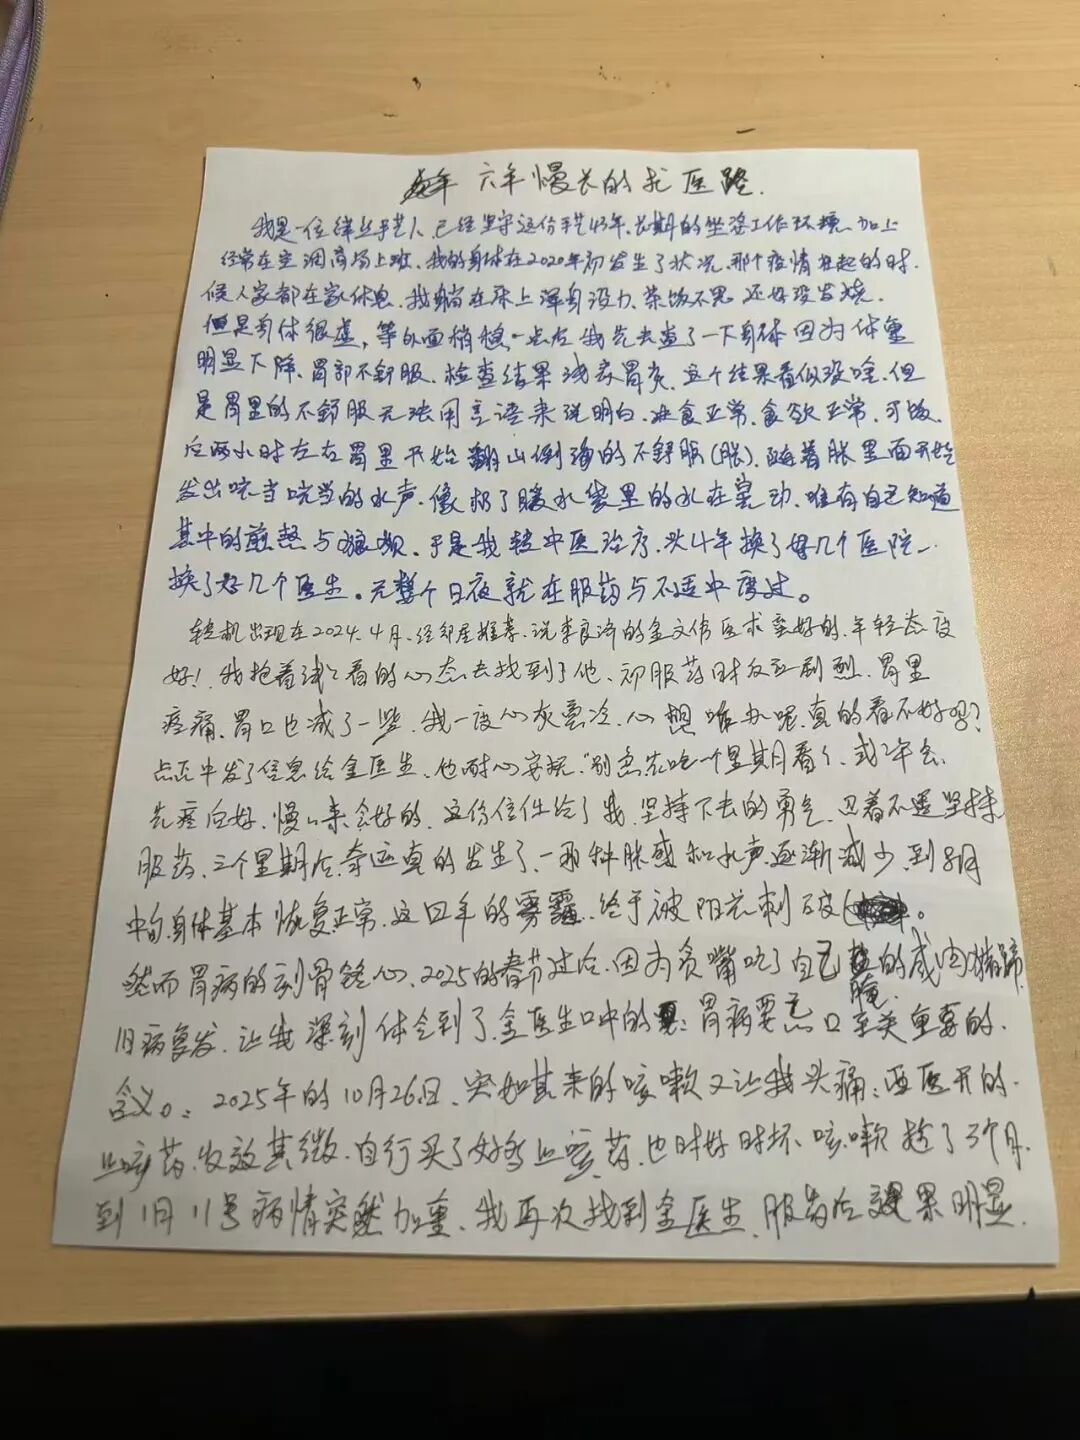 六年慢长的求医路.
我是一位缂丝手艺人,已经坚守这份手艺43年,长期的坐姿工作环境,加上
经常在空调商场上班、我的身体在2020年初发生了状况,那个疫情在起的时
候人家都在家休息,我躺在床上浑身没力,茶饭不思 还好没发烧.
但是身体很虚,等外面稍稳一点后 我先去查了一下身体 因为体重
明显下降、胃部不舒服、检查结果浅表胃炎、这个结果看似没啥、但
是胃里的不舒服无法用言语来说明白.进食正常、食欲正常、可饭
后两小时左右胃里开始翻山倒海的不舒服(胀)、随着胀里面开始
发出咣当咣当的水声,像极了暖水袋里的水在晃动、唯有自己知道
其中的煎熬与狼狈、于是我转中医治疗,头4年换了好几个医院、
换了好几个医生。无整个日夜就在服药与不适中度过。
转机出现在2024.4月、经邻居推荐、说李良济的金文伟医术蛮好的、年轻态度
好!我抱着试试看的心态去找到了他、初服药时反应剧烈、胃里
疼痛、胃口也减了一些、我一度心灰意冷、心想咋办呢,真的看不好吗?
忐忑中发了信息给金医生、他耐心安抚,"别急先吃一个星期看看,
先痊后好、慢慢来会好的、这份信任给了我、坚持下去的勇气、忍着不适坚持
服药、三个星期后,奇迹真的发生了、那种胀感和水声逐渐减少、到8月
中旬身体基本恢复正常、这四年的雾霾、终于被阳光刺破。
然而胃病的刻骨铭心、2025的春节过后、因为贪嘴吃了自己腌的咸肉猪蹄
旧病复发、让我深刻体会到了金医生口中的:胃病要忌口至关重要的.
含义。2025年的10月26日、突如其来的咳嗽又让我头痛;西医开的.
止咳药、收效甚微、自行买了好多止咳药、也时好时坏、咳嗽 拖了3个月.
到1月11号病情突然加重、我再次找到金医生、服药后效果明显.